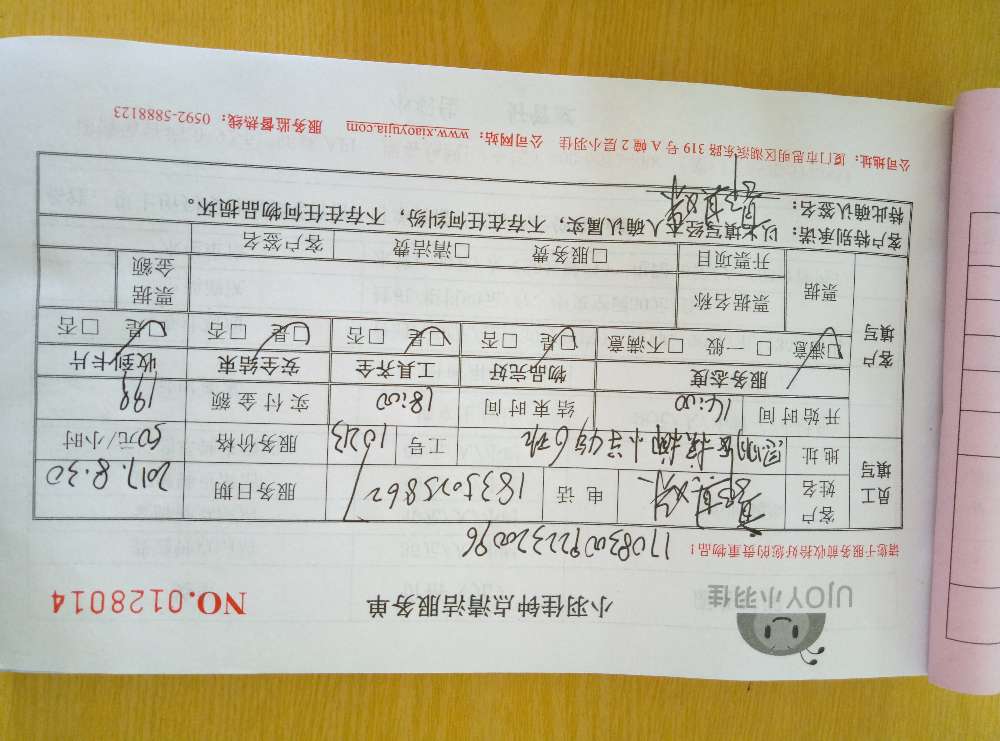 UJOY小羽佳
小羽佳钟点清洁服务单
NO.0128014
请您于服务前收拾好您的贵重物品！
员工填写
客户姓名
电话
服务日期 2017.8.30
地址
工号 10213
服务价格 50元/小时
开始时间 14:00 结束时间 18:00 实付金额 198
客户填写
服务态度 物品完好 工具齐全 安全结束 收到卡片
□满意 □一般 □不满意 □是 □否 □是 □否 □是 □否 □是 □否
票据
票据名称
票据金额
开票项目 □服务费 □清洁费 客户签名
客户特别承诺：以上填写经本人确认属实，不存在任何纠纷，不存在任何物品损坏。
特此确认签名：
公司地址：厦门市思明区湖滨东路 319 号 A 幢 2 层小羽佳 公司网站：www.xiaoyujia.com 服务监督热线：0592-5888123